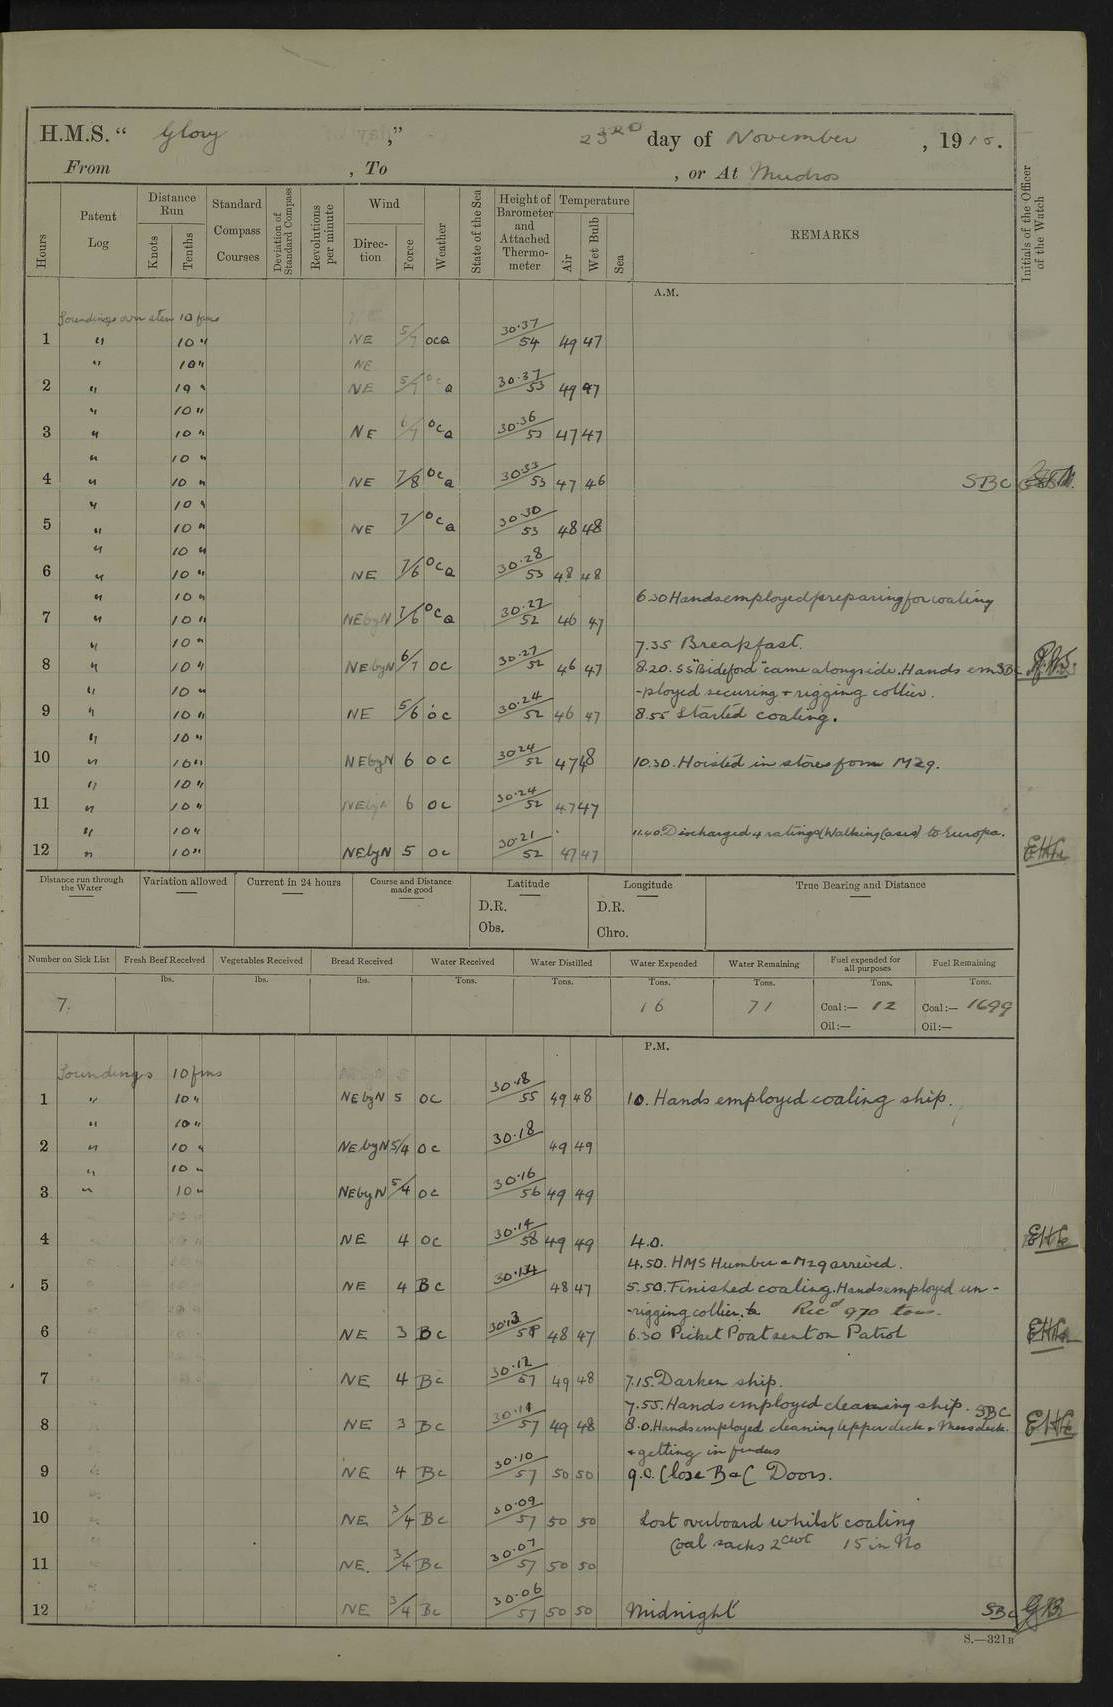 H.M.S. “ Glory ”, 23RD day of November , 1915.
From , To , or At Mudros
Hours
Patent Log
Distance Run
Knots
Tenths
Standard Compass Courses
Deviation of Standard Compass
Revolutions per minute
Wind
Direction
Force
Weather
State of the Sea
Height of Barometer and Attached Thermometer
Temperature
Air
Wet Bulb
Sea
REMARKS
Initials of the Officer of the Watch
A.M.
Soundings over stern 10 fms
1 " 10 " NE 5/7 oca 30.37/54 49 47
" 10 " NE
2 " 10 " NE 5/7 oca 30.37/53 49 47
" 10 "
3 " 10 " NE 6/7 oca 30.36/53 47 47
" 10 "
4 " 10 " NE 7/8 oca 30.33/53 47 46 SBC
" 10 "
5 " 10 " NE 7 oca 30.30/53 48 48
" 10 "
6 " 10 " NE 7/6 oca 30.28/53 48 48
" 10 " 6.30 Hands employed preparing for coaling
7 " 10 " NEbyN 7/6 oca 30.27/52 46 47
" 10 " 7.35 Breakfast.
8 " 10 " NEbyN 6/7 oc 30.27/52 46 47 8.20. SS "Bideford" came alongside. Hands em SBC
" 10 " -ployed securing + rigging collier.
9 " 10 " NE 5/6 oc 30.24/52 46 47 8.55 Started coaling.
" 10 "
10 " 10 " NEbyN 6 oc 30.24/52 47 48 10.30. Hoisted in stores from M29.
" 10 "
11 " 10 " NEbyN 6 oc 30.24/52 47 47
" 10 " 11.40. Discharged 4 ratings (Walking Cases) to Europa.
12 " 10 " NEbyN 5 oc 30.21/52 47 47
Distance run through the Water
Variation allowed
Current in 24 hours
Course and Distance made good
Latitude
D.R.
Obs.
Longitude
D.R.
Chro.
True Bearing and Distance
Number on Sick List
Fresh Beef Received
Vegetables Received
Bread Received
Water Received
Water Distilled
Water Expended
Water Remaining
Fuel expended for all purposes
Fuel Remaining
lbs. lbs. lbs. Tons. Tons. Tons. Tons. Tons. Tons.
7. 16 71 Coal:— 12 Coal:— 1699
Oil:— Oil:—
P.M.
Soundings 10 fms
1 " 10 " NEbyN 5 oc 30.18/55 49 48 10. Hands employed coaling ship.
" 10 "
2 " 10 " NEbyN 5/4 oc 30.18 49 49
" 10 "
3 " 10 " NEbyN 5/4 oc 30.16/56 49 49
4 NE 4 oc 30.14/58 49 49 4.0.
4.50. HMS Humber + M29 arrived.
5 NE 4 Bc 30.14 48 47 5.50. Finished coaling. Hands employed un-
-rigging collier. Recd 970 tons.
6 NE 3 Bc 30.13/58 48 47 6.30 Picket Boat sent on Patrol
7 NE 4 Bc 30.12/57 49 48 7.15. Darken ship.
7.55. Hands employed cleaning ship. SBC
8 NE 3 Bc 30.11/57 49 48 8.0. Hands employed cleaning Upper deck + Mess deck.
+ getting in fenders
9 NE 4 Bc 30.10/57 50 50 9.0. Close B & C Doors.
10 NE 3/4 Bc 30.09/57 50 50 Lost overboard whilst coaling
Coal sacks 2 cwt 15 in No
11 NE. 3/4 Bc 30.07/57 50 50
12 NE 3/4 Bc 30.06/57 50 50 Midnight SBC
S.—321B